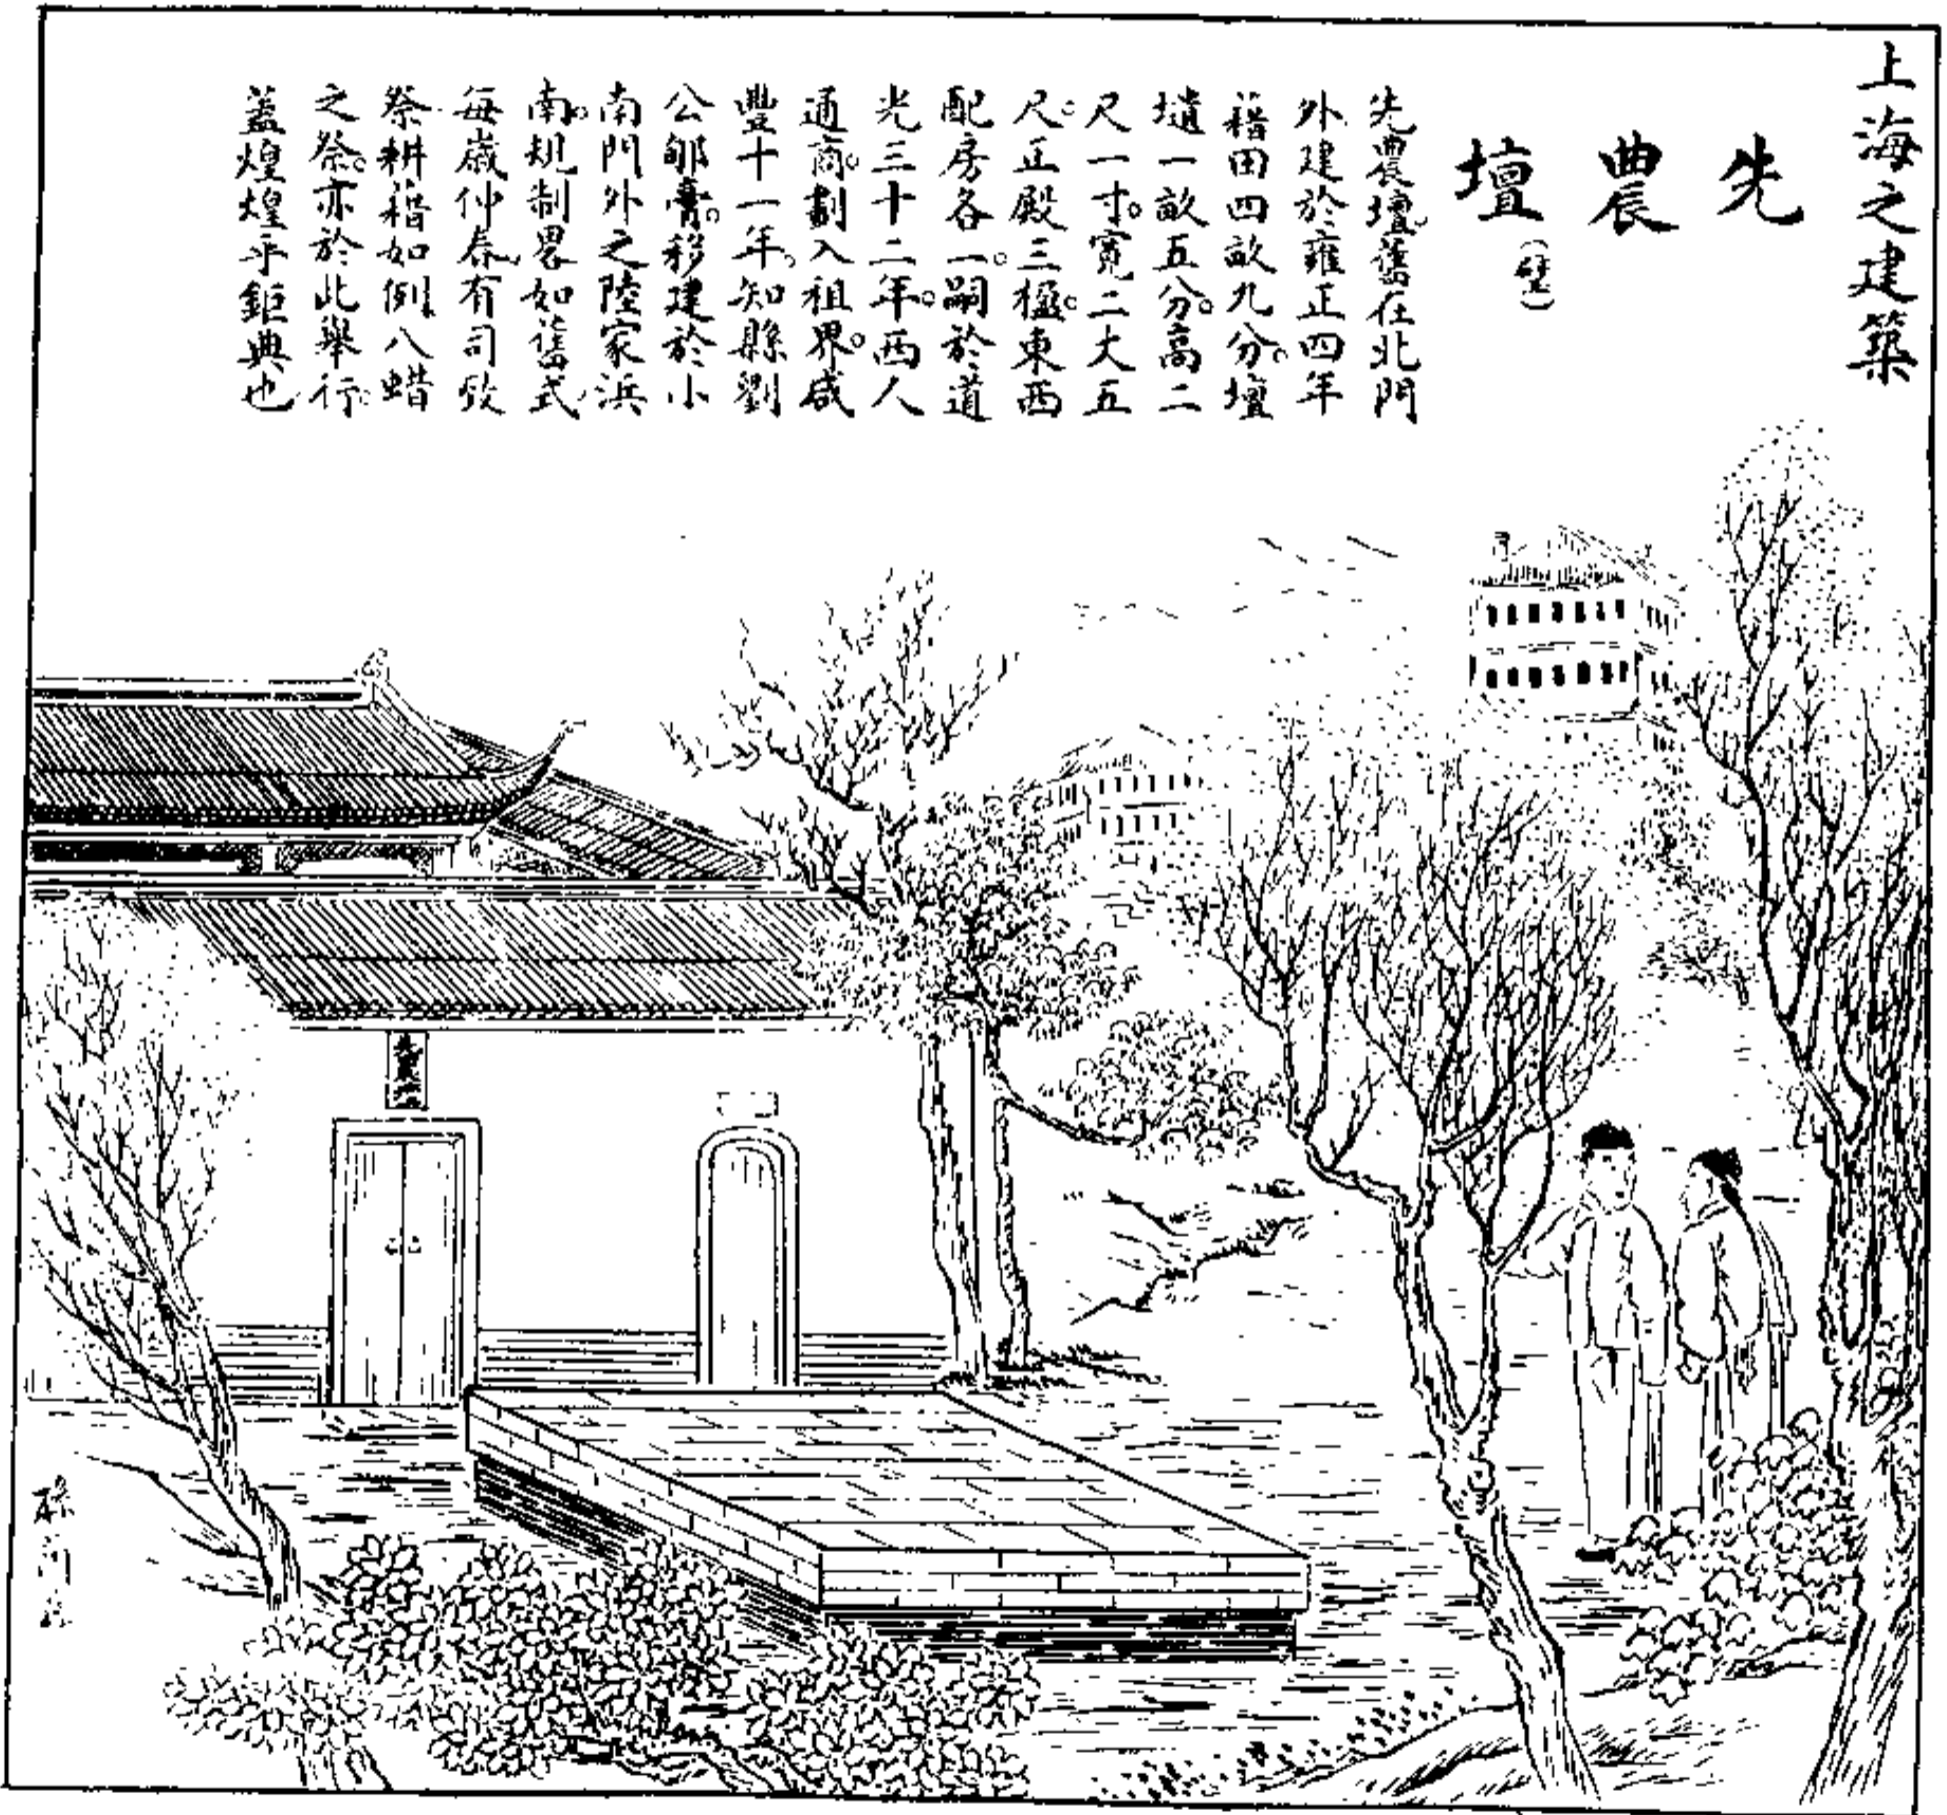 上海之建築
先農壇
(壁)
先農壇。舊在北門
外建於雍正四年
藉田四畝九分。壇
壝一畝五分。高二
尺一寸。寬二丈五
尺。正殿三楹。東西
配房各一。嗣於道
光三十二年。西人
通商。劃入租界。咸
豐十一年。知縣劉
公郇膏。移建於小
南門外之陸家浜
南。規制畧如舊式。
每歲仲春。有司致
祭耕藉如例。八蜡
之祭。亦於此舉行。
蓋煌煌乎鉅典也
先農壇